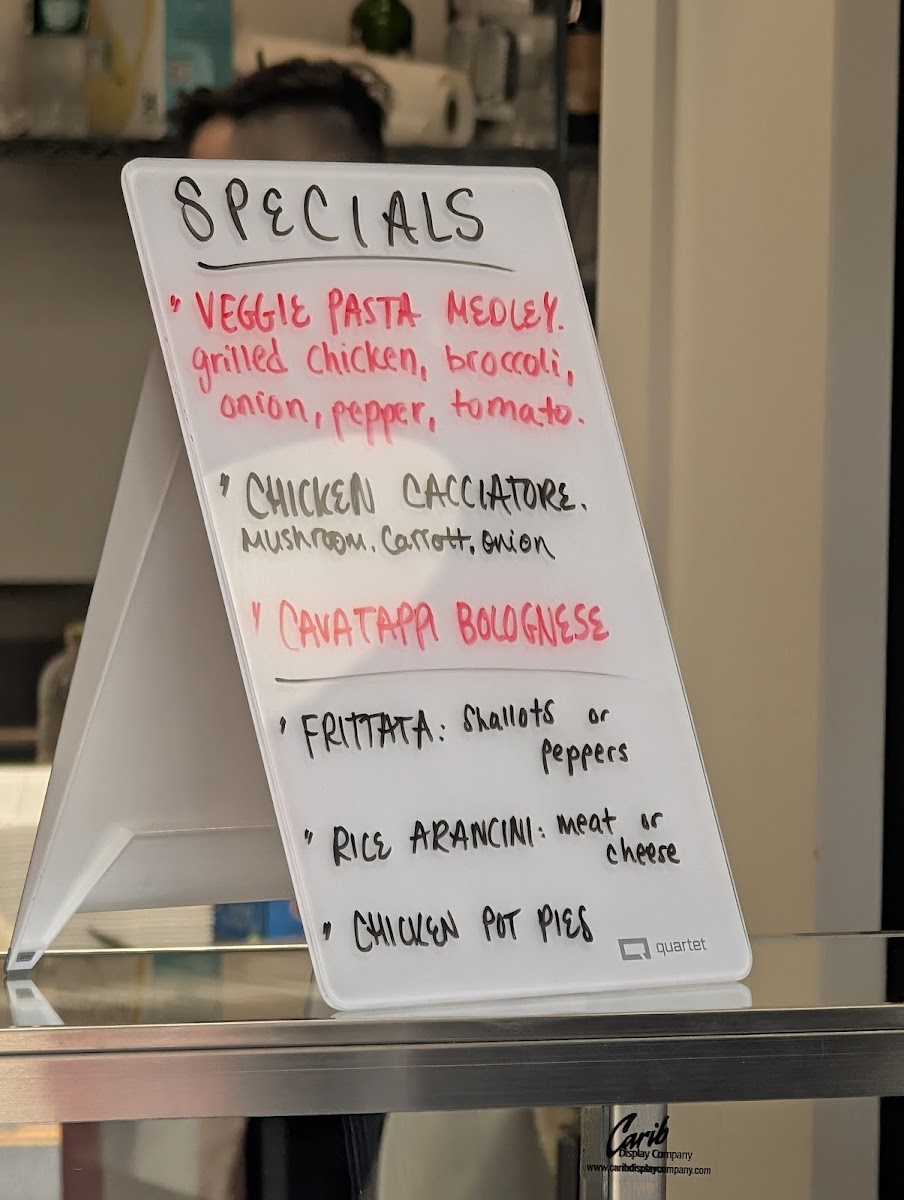 SPECIALS
" VEGGIE PASTA MEDLEY.
grilled chicken, broccoli,
onion, pepper, tomato.
" CHICKEN CACCIATORE.
Mushroom, Carrott, onion
" CAVATAPPI BOLOGNESE
" FRITTATA: Shallots or
peppers
" RICE ARANCINI: meat or
cheese
" CHICKEN POT PIES
quartet
Carib
Display Company
www.caribdisplaycompany.com